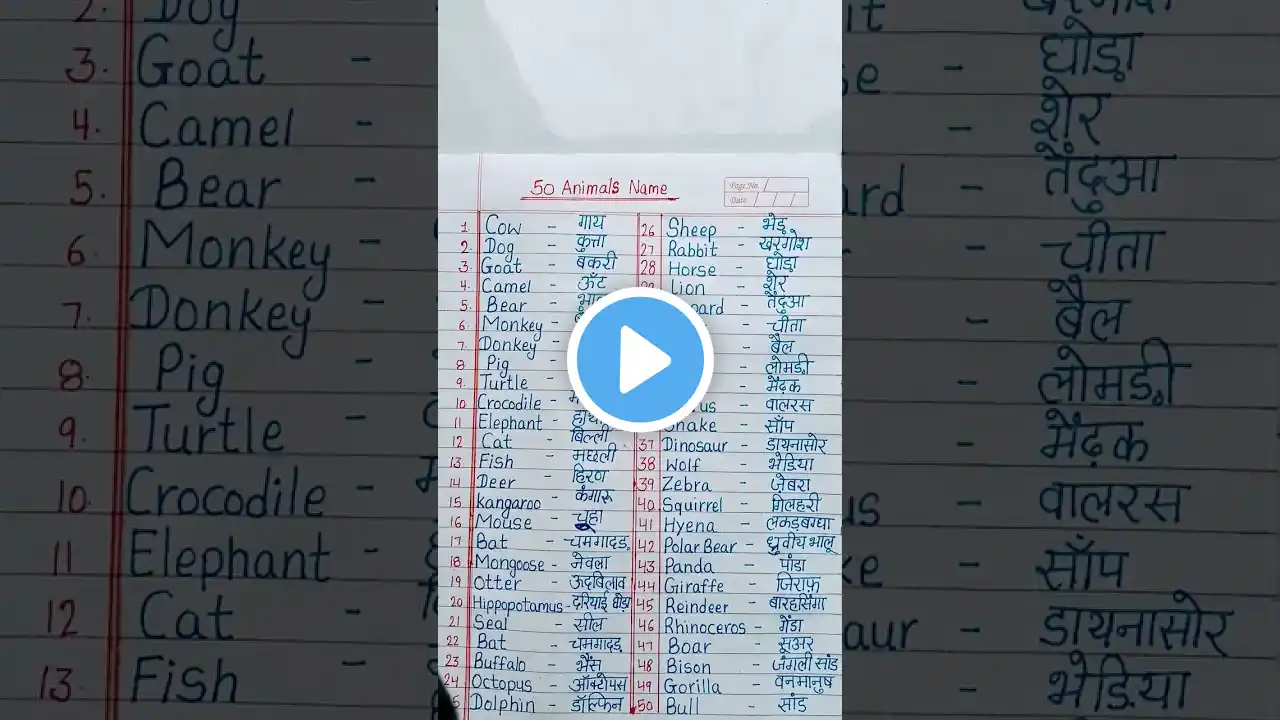 50 Animals Name
Page No.
Date
1 Cow - गाय
2 Dog - कुत्ता
3. Goat - बकरी
4. Camel - ऊँट
5. Bear -
6. Monkey -
7. Donkey -
8 Pig
9. Turtle
10 Crocodile -
11 Elephant -
12 Cat - बिल्ली
13 Fish - मछली
14 Deer - हिरण
15 Kangaroo - कंगारू
16 Mouse - चूहा
17 Bat - चमगादड़
18 Mongoose - नेवला
19 Otter - ऊदबिलाव
20 Hippopotamus - दरियाई घोड़ा
21 Seal - सील
22 Bat - चमगादड़
23 Buffalo - भैंस
24 Octopus - ऑक्टोपस
Dolphin - डॉल्फिन
26 Sheep - भेड़
27 Rabbit - खरगोश
28 Horse - घोड़ा
Lion - शेर
- तेंदुआ
- चीता
- बैल
- लोमड़ी
- मेंढ़क
- वालरस
- साँप
37 Dinosaur - डायनासोर
38 Wolf - भेड़िया
39 Zebra - जेबरा
40 Squirrel - गिलहरी
41 Hyena - लकड़बग्घा
42 Polar Bear - ध्रुवीय भालू
43 Panda - पांडा
44 Giraffe - जिराफ़
45 Reindeer - बारहसिंगा
46 Rhinoceros - गेंडा
47 Boar - सूअर
48 Bison - जंगली सांड
49 Gorilla - वनमानुष
50 Bull - सांड
2. Dog
3. Goat -
4. Camel -
5. Bear
6. Monkey -
7. Donkey -
8. Pig -
9. Turtle -
10 Crocodile -
11 Elephant -
12 Cat -
13. Fish -
खरगोश
- घोड़ा
- शेर
तेंदुआ
- चीता
- बैल
- लोमड़ी
- मेंढ़क
- वालरस
- साँप
- डायनासोर
- भेड़िया